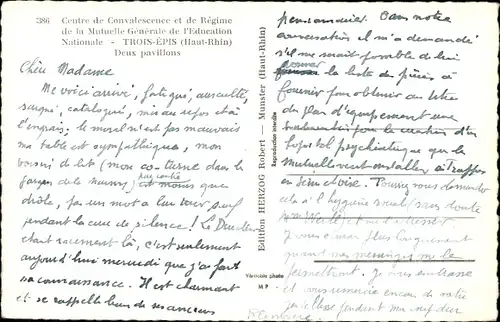 386 Centre de Convalescence et de Régime
de la Mutuelle Générale de l'Education
Nationale - TROIS-ÉPIS (Haut-Rhin)
Deux pavillons
Chère Madame
Me voici arrivé, fatigué, ausculté,
saigné, catalogué, mis au repos et à
l'engrais; le moral n'est pas mauvais
ma table est sympathique, mon
voisin de lit (mon co-turne dans le
jargon de la maison) est moins que
drôle, pas un mot à lui
pendant la cure de silence! Le Directeur
étant rarement là, c'est seulement
aujourd'hui mercredi que j'ai fait
sa connaissance. Il est charmant
et se rappelle bien de ses anciens
Edition HERZOG Robert — Munster (Haut-Rhin)
Reproduction interdite
Véritable photo
M P
pensionnaires. Dans notre
conversation il m'a demandé
s'il me serait possible de lui
donner la liste des pièces à
fournir pour obtenir au titre
du plan d'équipement une
pour la création d'un
hopital psychiatrique que la
Mutuelle veut installer à
en Seine et Oise. Pouvez vous demander
cela à l'hygiène sociale (sans doute
et me l'adresser.
Je vous écrirai plus longuement
quand mes me le
permettront. Je vous embrasse
et vous remercie encore de votre
pendant ma